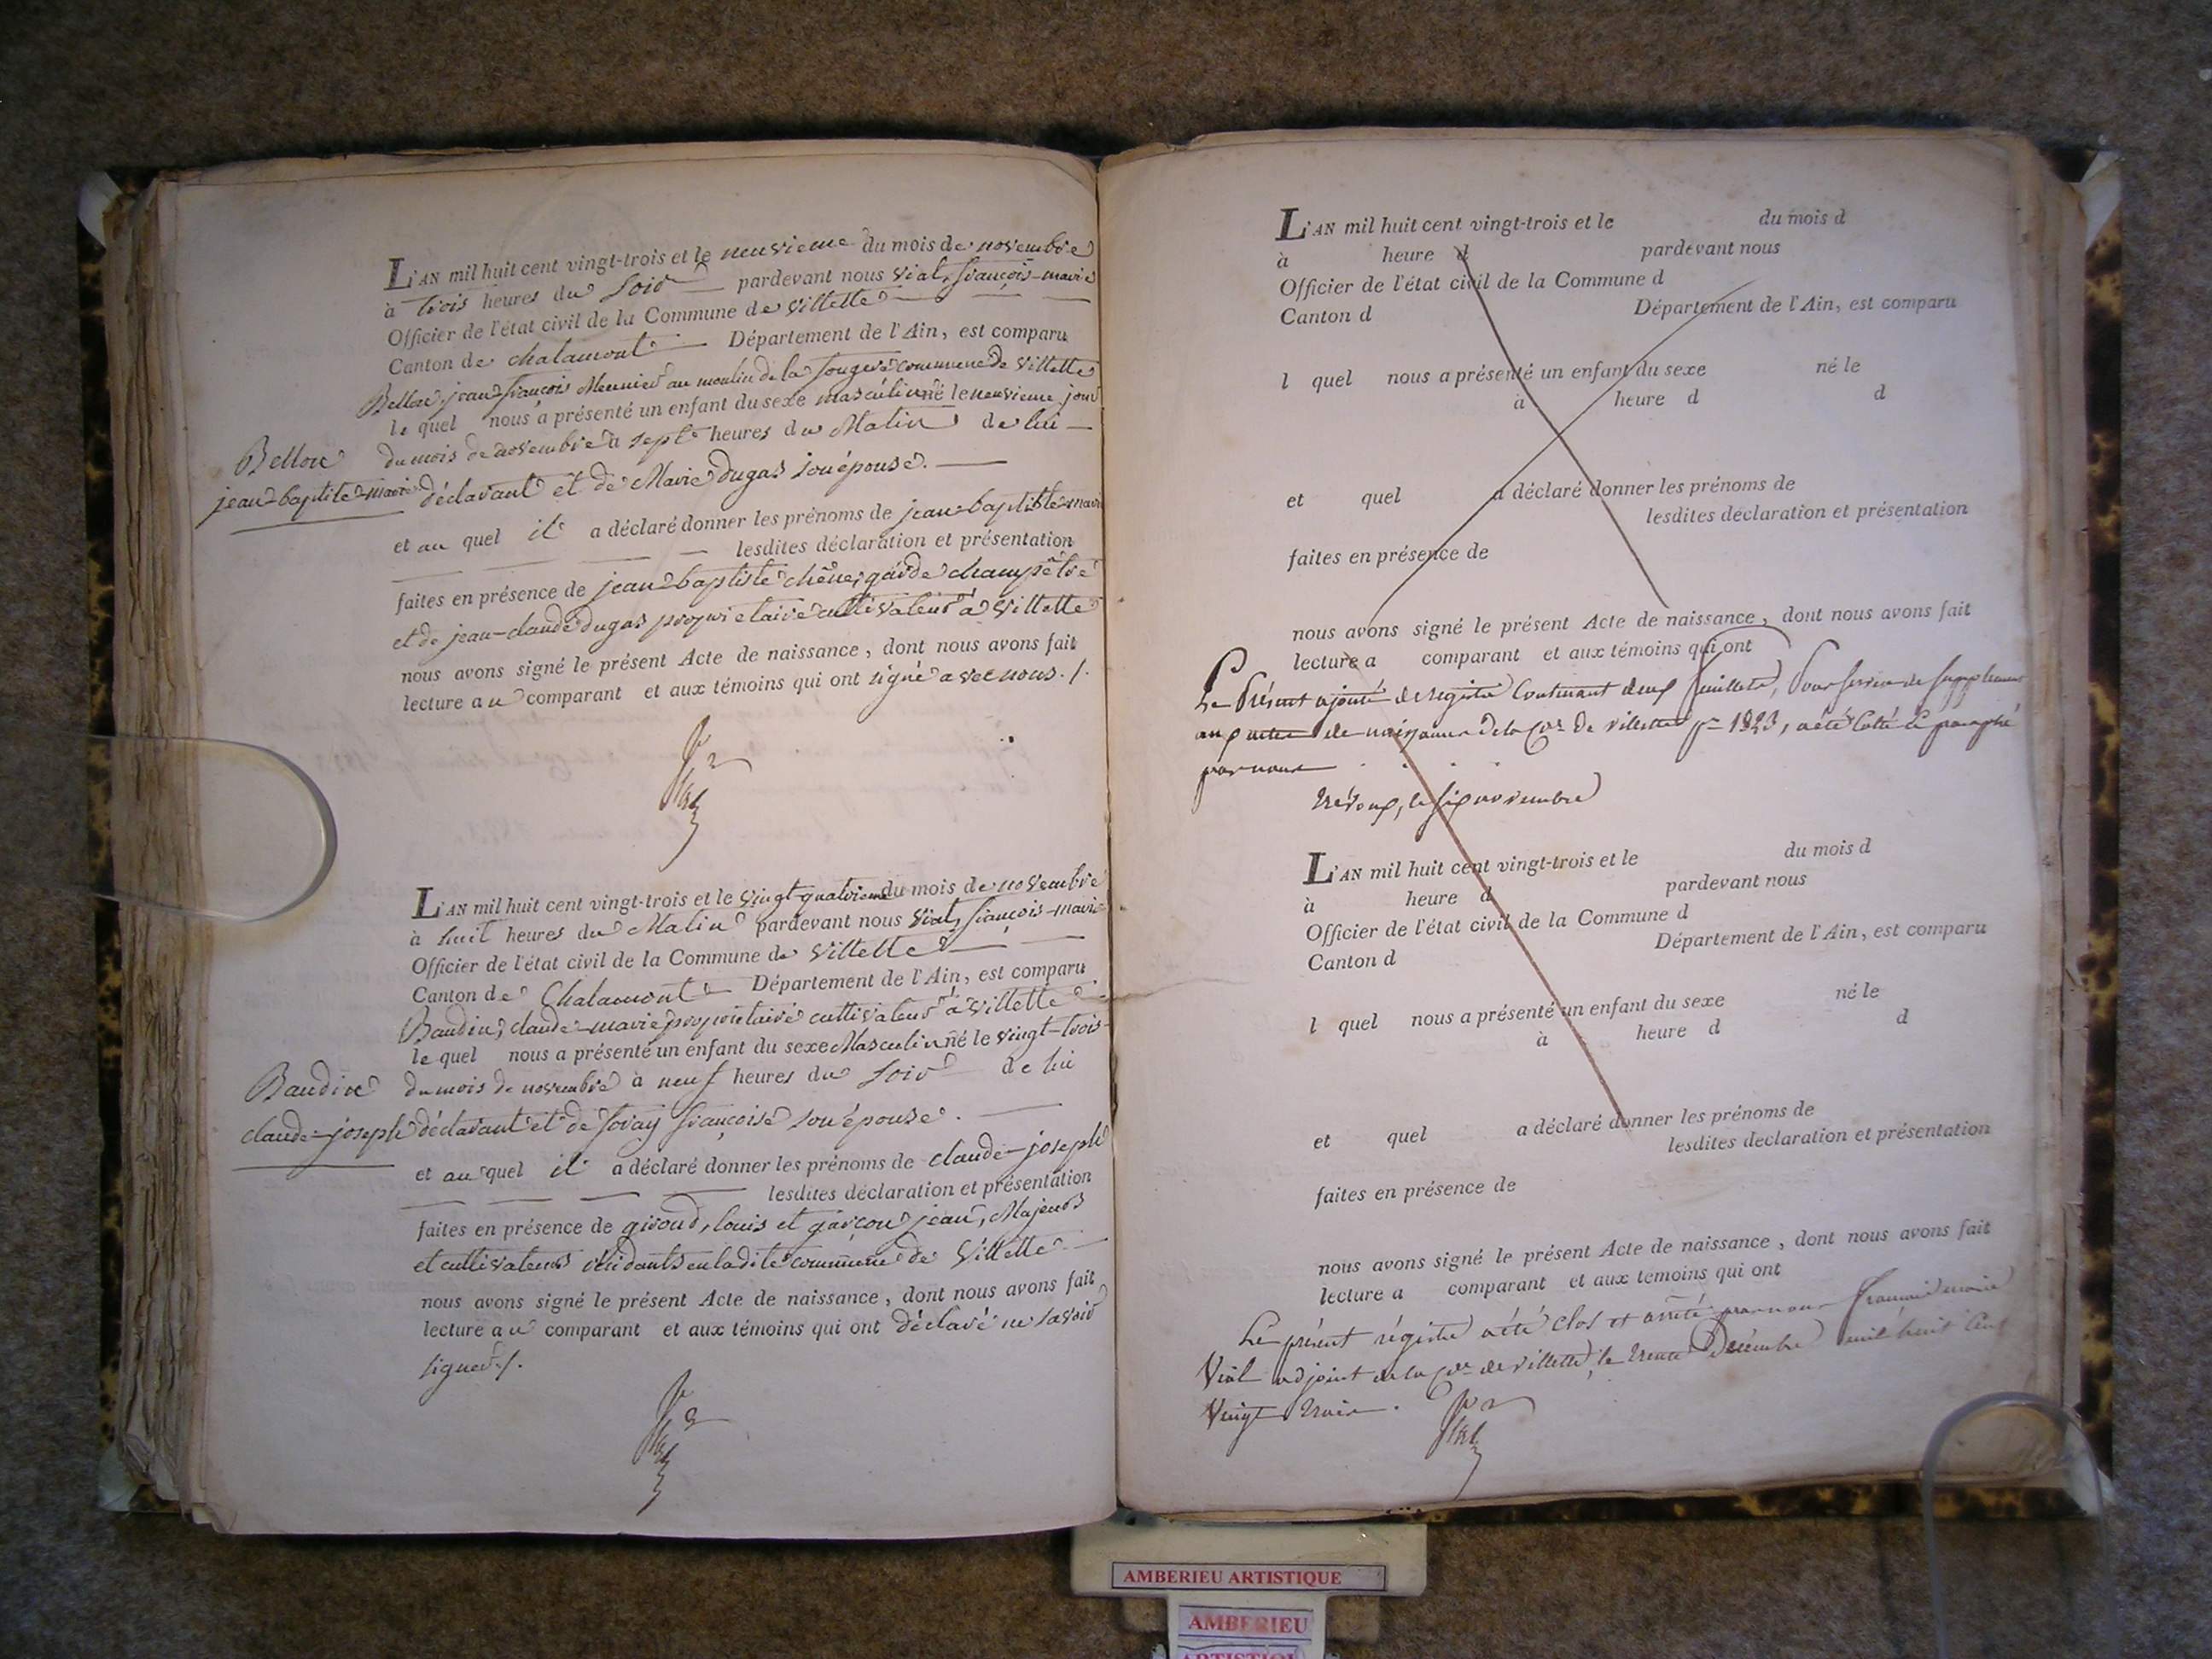 L'AN mil huit cent vingt-trois et le neuvieme du mois de novembre
à trois heures du soir pardevant nous Vial, françois-marie
Officier de l'état civil de la Commune de Villette
Canton de chalamont Département de l'Ain, est comparu
Bellon, jean-françois Meunier au moulin de la fougere commune de Villette
le quel nous a présenté un enfant du sexe masculin né le neuvieme jour
du mois de novembre à sept heures du Matin de lui
Bellon
jean-baptiste-marie
déclarant et de Marie dugas son épouse.
et au quel il a déclaré donner les prénoms de jean-baptiste-marie
lesdites déclaration et présentation
faites en présence de jean-baptiste chêne, garde champêtre
et de jean-claude dugas proprietaire cultivateur à Villette
nous avons signé le présent Acte de naissance, dont nous avons fait
lecture au comparant et aux témoins qui ont signé avec nous./.
Vial
L'AN mil huit cent vingt-trois et le vingt-quatrieme du mois de novembre
à huit heures du Matin pardevant nous Vial, françois-marie
Officier de l'état civil de la Commune de Villette
Canton de Chalamont Département de l'Ain, est comparu
Baudin, claude-marie proprietaire cultivateur à Villette
le quel nous a présenté un enfant du sexe Masculin né le vingt-trois
du mois de novembre à neuf heures du soir de lui
Baudin
claude-joseph
déclarant et de françoise son épouse.
et au quel il a déclaré donner les prénoms de claude-joseph
lesdites déclaration et présentation
faites en présence de giroud, louis et garçon jean, Majeurs
et cultivateurs résidants en ladite commune de Villette
nous avons signé le présent Acte de naissance, dont nous avons fait
lecture au comparant et aux témoins qui ont déclaré ne savoir
signer./.
Vial
L'AN mil huit cent vingt-trois et le du mois d
à heure d pardevant nous
Officier de l'état civil de la Commune d
Canton d Département de l'Ain, est comparu
l quel nous a présenté un enfant du sexe né le
à heure d d
et quel a déclaré donner les prénoms de
lesdites déclaration et présentation
faites en présence de
nous avons signé le présent Acte de naissance, dont nous avons fait
lecture a comparant et aux témoins qui ont
Le Présent ajouté de registre Contenant deux feuillets, Pour servir de supplement
aux actes de naissance de la Cne de villette pr 1823, a été Cotté et paraphé
par nous
Trévoux, le six novembre
L'AN mil huit cent vingt-trois et le du mois d
à heure d pardevant nous
Officier de l'état civil de la Commune d
Canton d Département de l'Ain, est comparu
l quel nous a présenté un enfant du sexe né le
à heure d d
et quel a déclaré donner les prénoms de
lesdites declaration et présentation
faites en présence de
nous avons signé le présent Acte de naissance, dont nous avons fait
lecture a comparant et aux temoins qui ont
Le présent régistre a été Clos et arrêté par nous françois marie
Vial adjoint de la Cne de Villette, le trente Décembre mil huit Cent
Vingt trois.
Vial
AMBERIEU ARTISTIQUE
AMBERIEU
ARTISTIQU